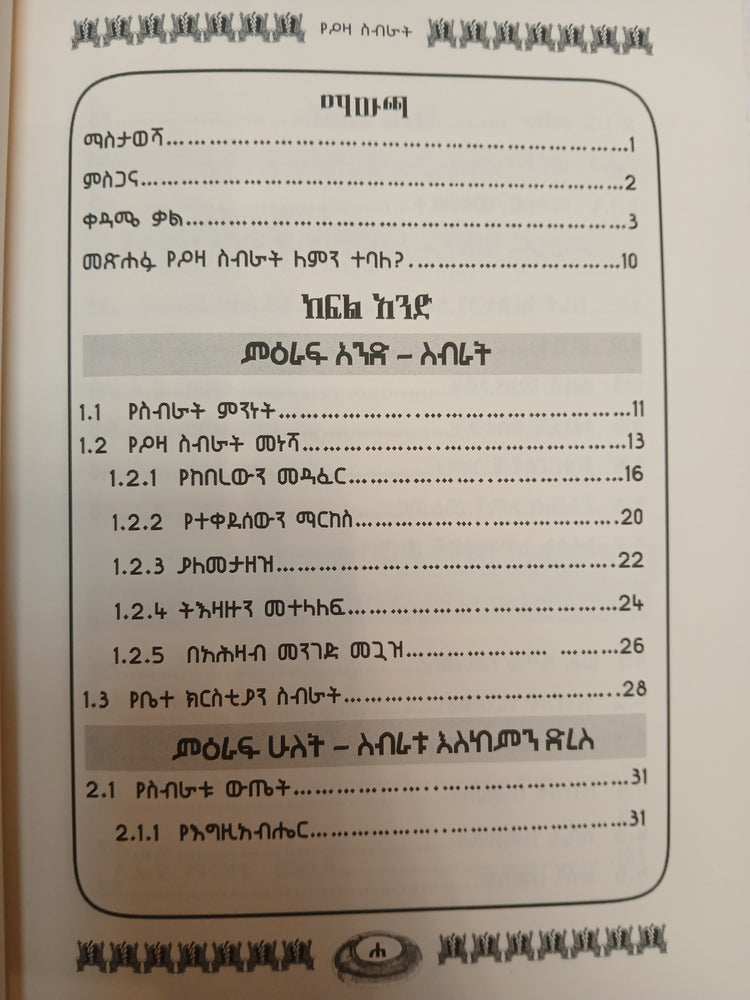 የዖዛ ስብራት
ማውጫ
ማስታወሻ……………………………………………………1
ምስጋና………………………………………………………2
ቀዳሜ ቃል…………………………………………………3
መጽሐፉ የዖዛ ስብራት ለምን ተባለ?……………………10
ክፍል አንድ
ምዕራፍ አንድ – ስብራት
1.1 የስብራት ምንነት………………………………………11
1.2 የዖዛ ስብራት መነሻ……………………………………13
1.2.1 የከበረውን መዳፈር………………………………16
1.2.2 የተቀደሰውን ማርከስ……………………………20
1.2.3 ያለመታዘዝ…………………………………………22
1.2.4 ትእዛዙን መተላለፍ………………………………24
1.2.5 በአሕዛብ መንገድ መጓዝ…………………… ………26
1.3 የቤተ ክርስቲያን ስብራት………………………………28
ምዕራፍ ሁለት – ስብራቱ እስከምን ድረስ
2.1 የስብራቱ ውጤት………………………………………31
2.1.1 የእግዚአብሔር……………………………………31
ሐ